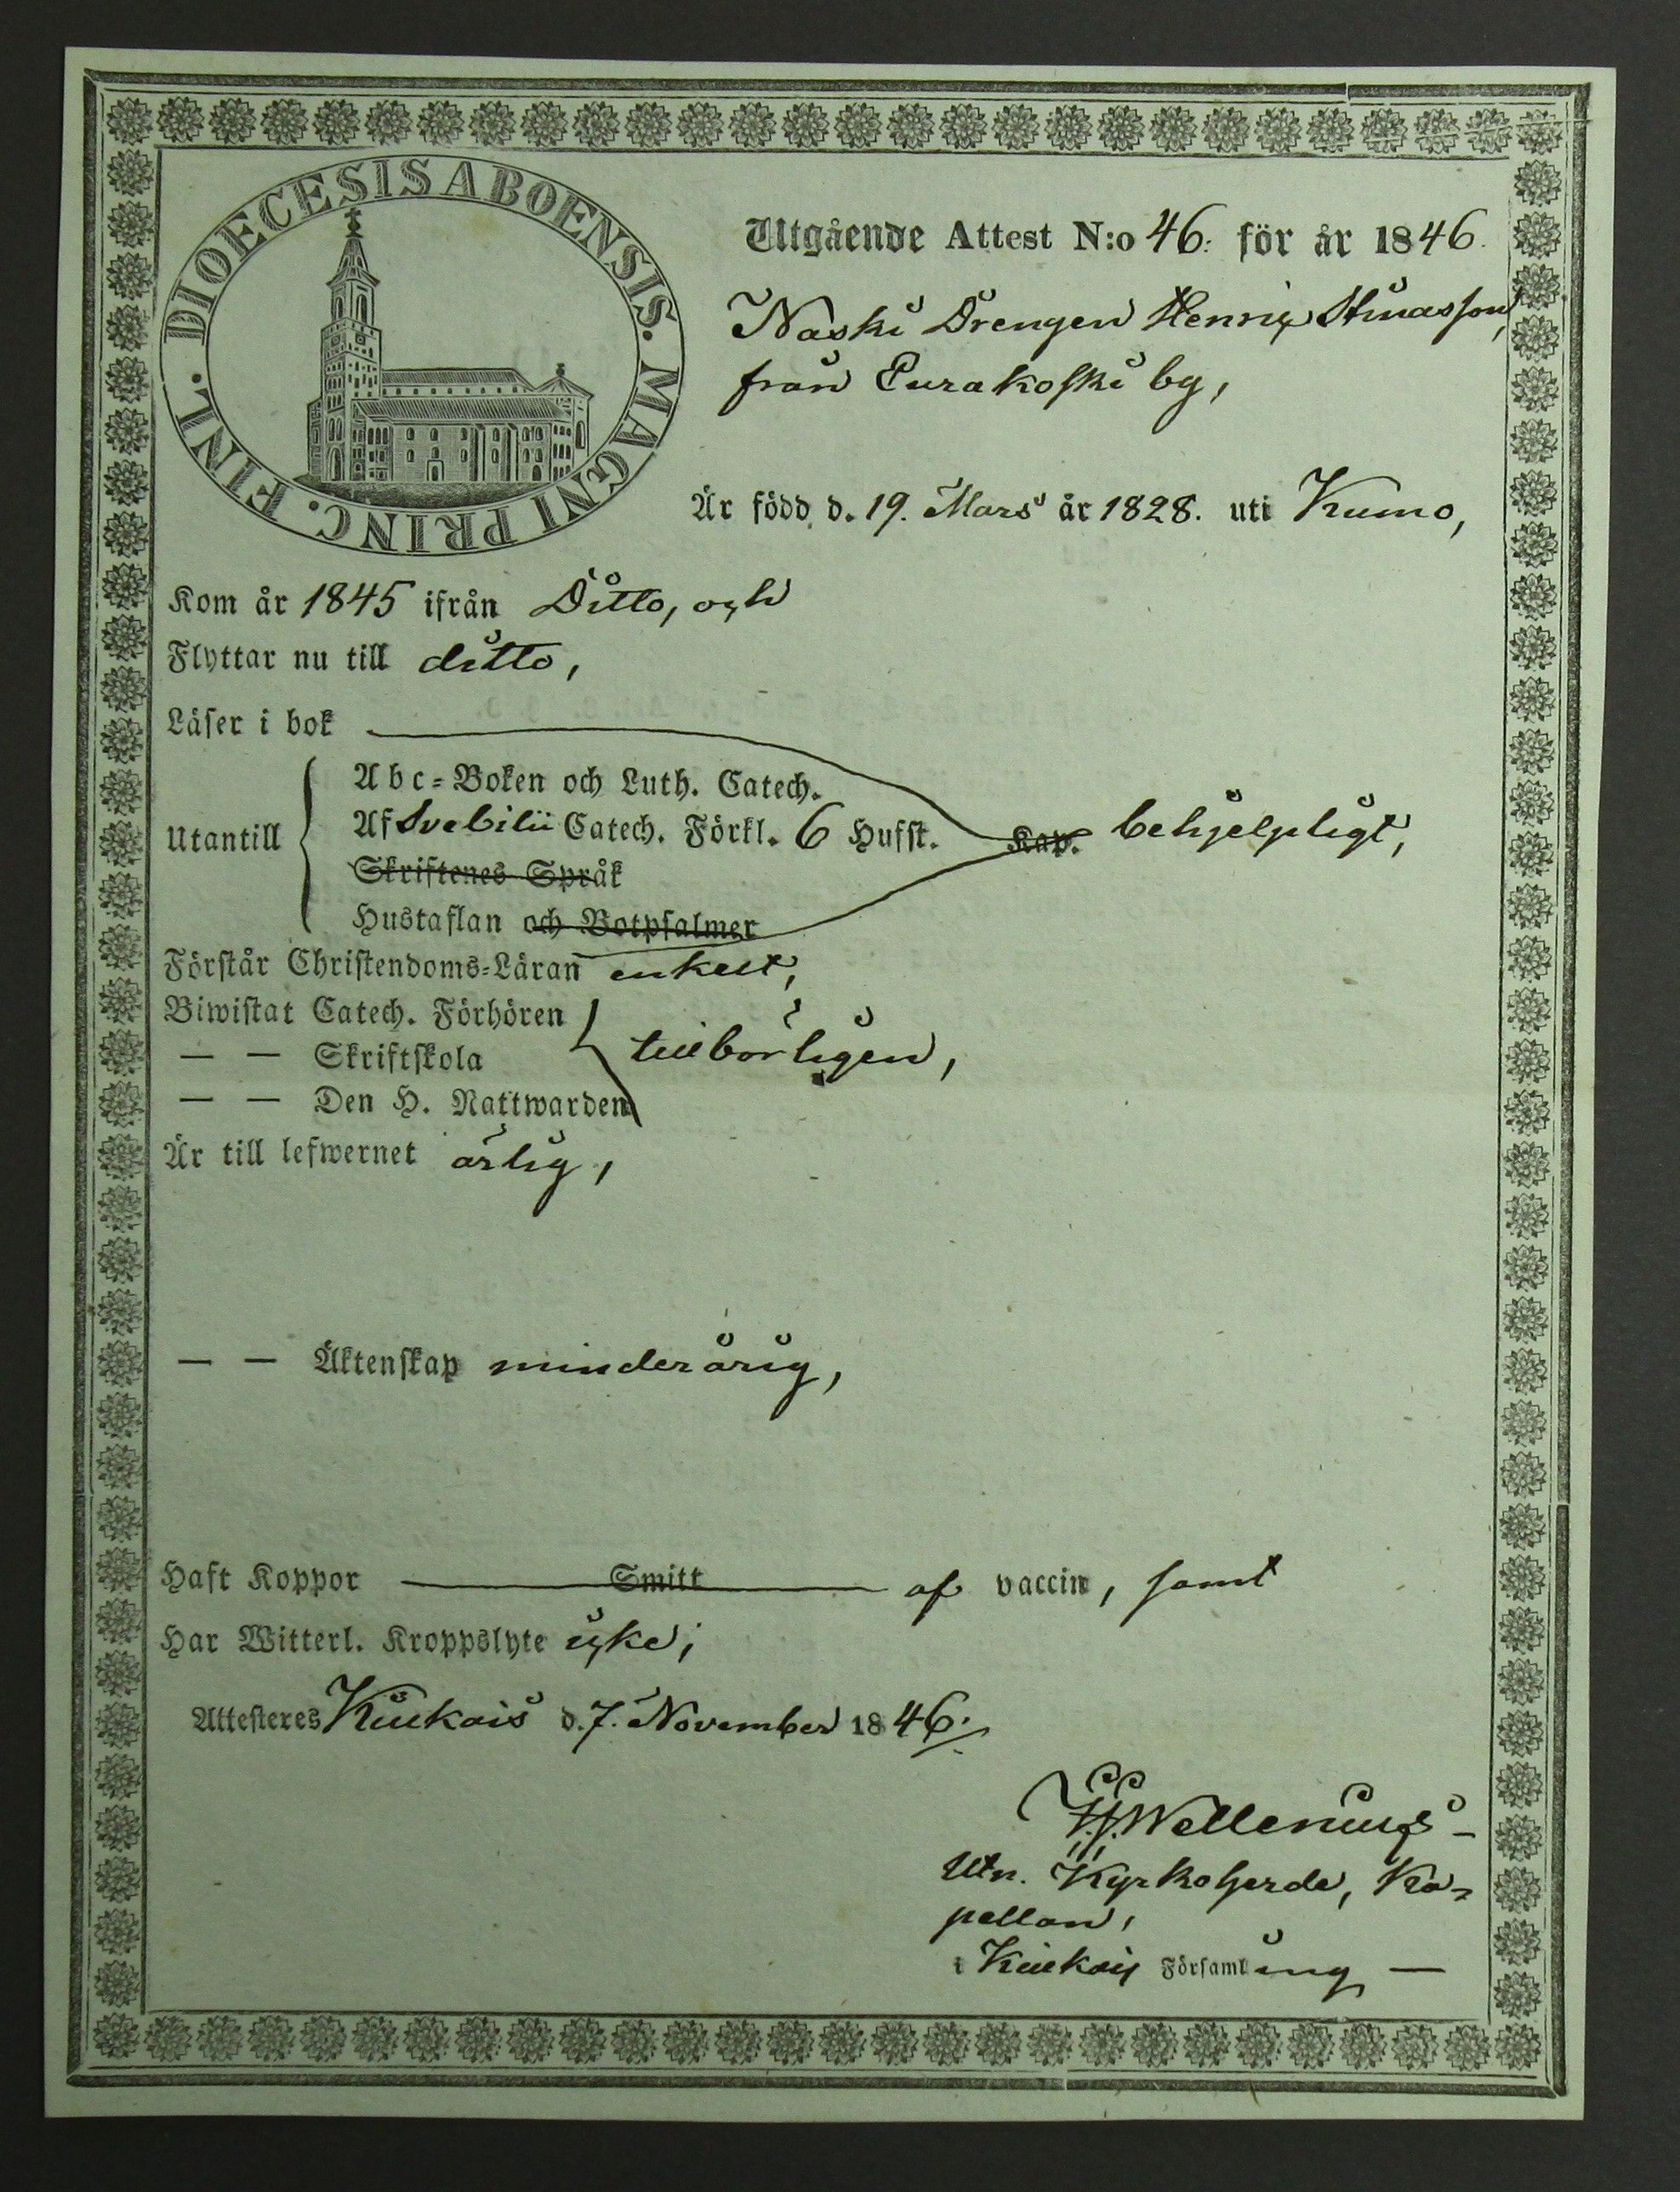 DIOECESIS ABOENSIS. MAGNI PRINC. FINL.
Utgående Attest N:o 46. för år 1846.
Naski Drengen Henrix Stuasson,
från Eurakoski by,
Är född d. 19. Mars år 1828. uti Kumo,
Kom år 1845 ifrån Ditto, och
Flyttar nu till ditto,
Läser i bok
Utantill
Abc-Boken och Luth. Catech.
Af Svebilii Catech. Förkl. 6 Hufst. Kap. behjelpligt,
Skriftenes Språk
Hustaflan och Botpsalmer
Förstår Christendoms-Läran enkelt,
Biwistat Catech. Förhören
— — Skriftskola tillbörligen,
— — Den H. Nattwarden
Är till lefwernet ärlig,
— — Äktenskap minderårig,
Haft Koppor Smitt af vaccin, samt
Har Witterl. Kroppslyte icke;
Attesteres Kiukais d. 7. November 1846.
Wallenius
Utn. Kyrkoherde, Ka-
pellan,
i Kiukais Församling —